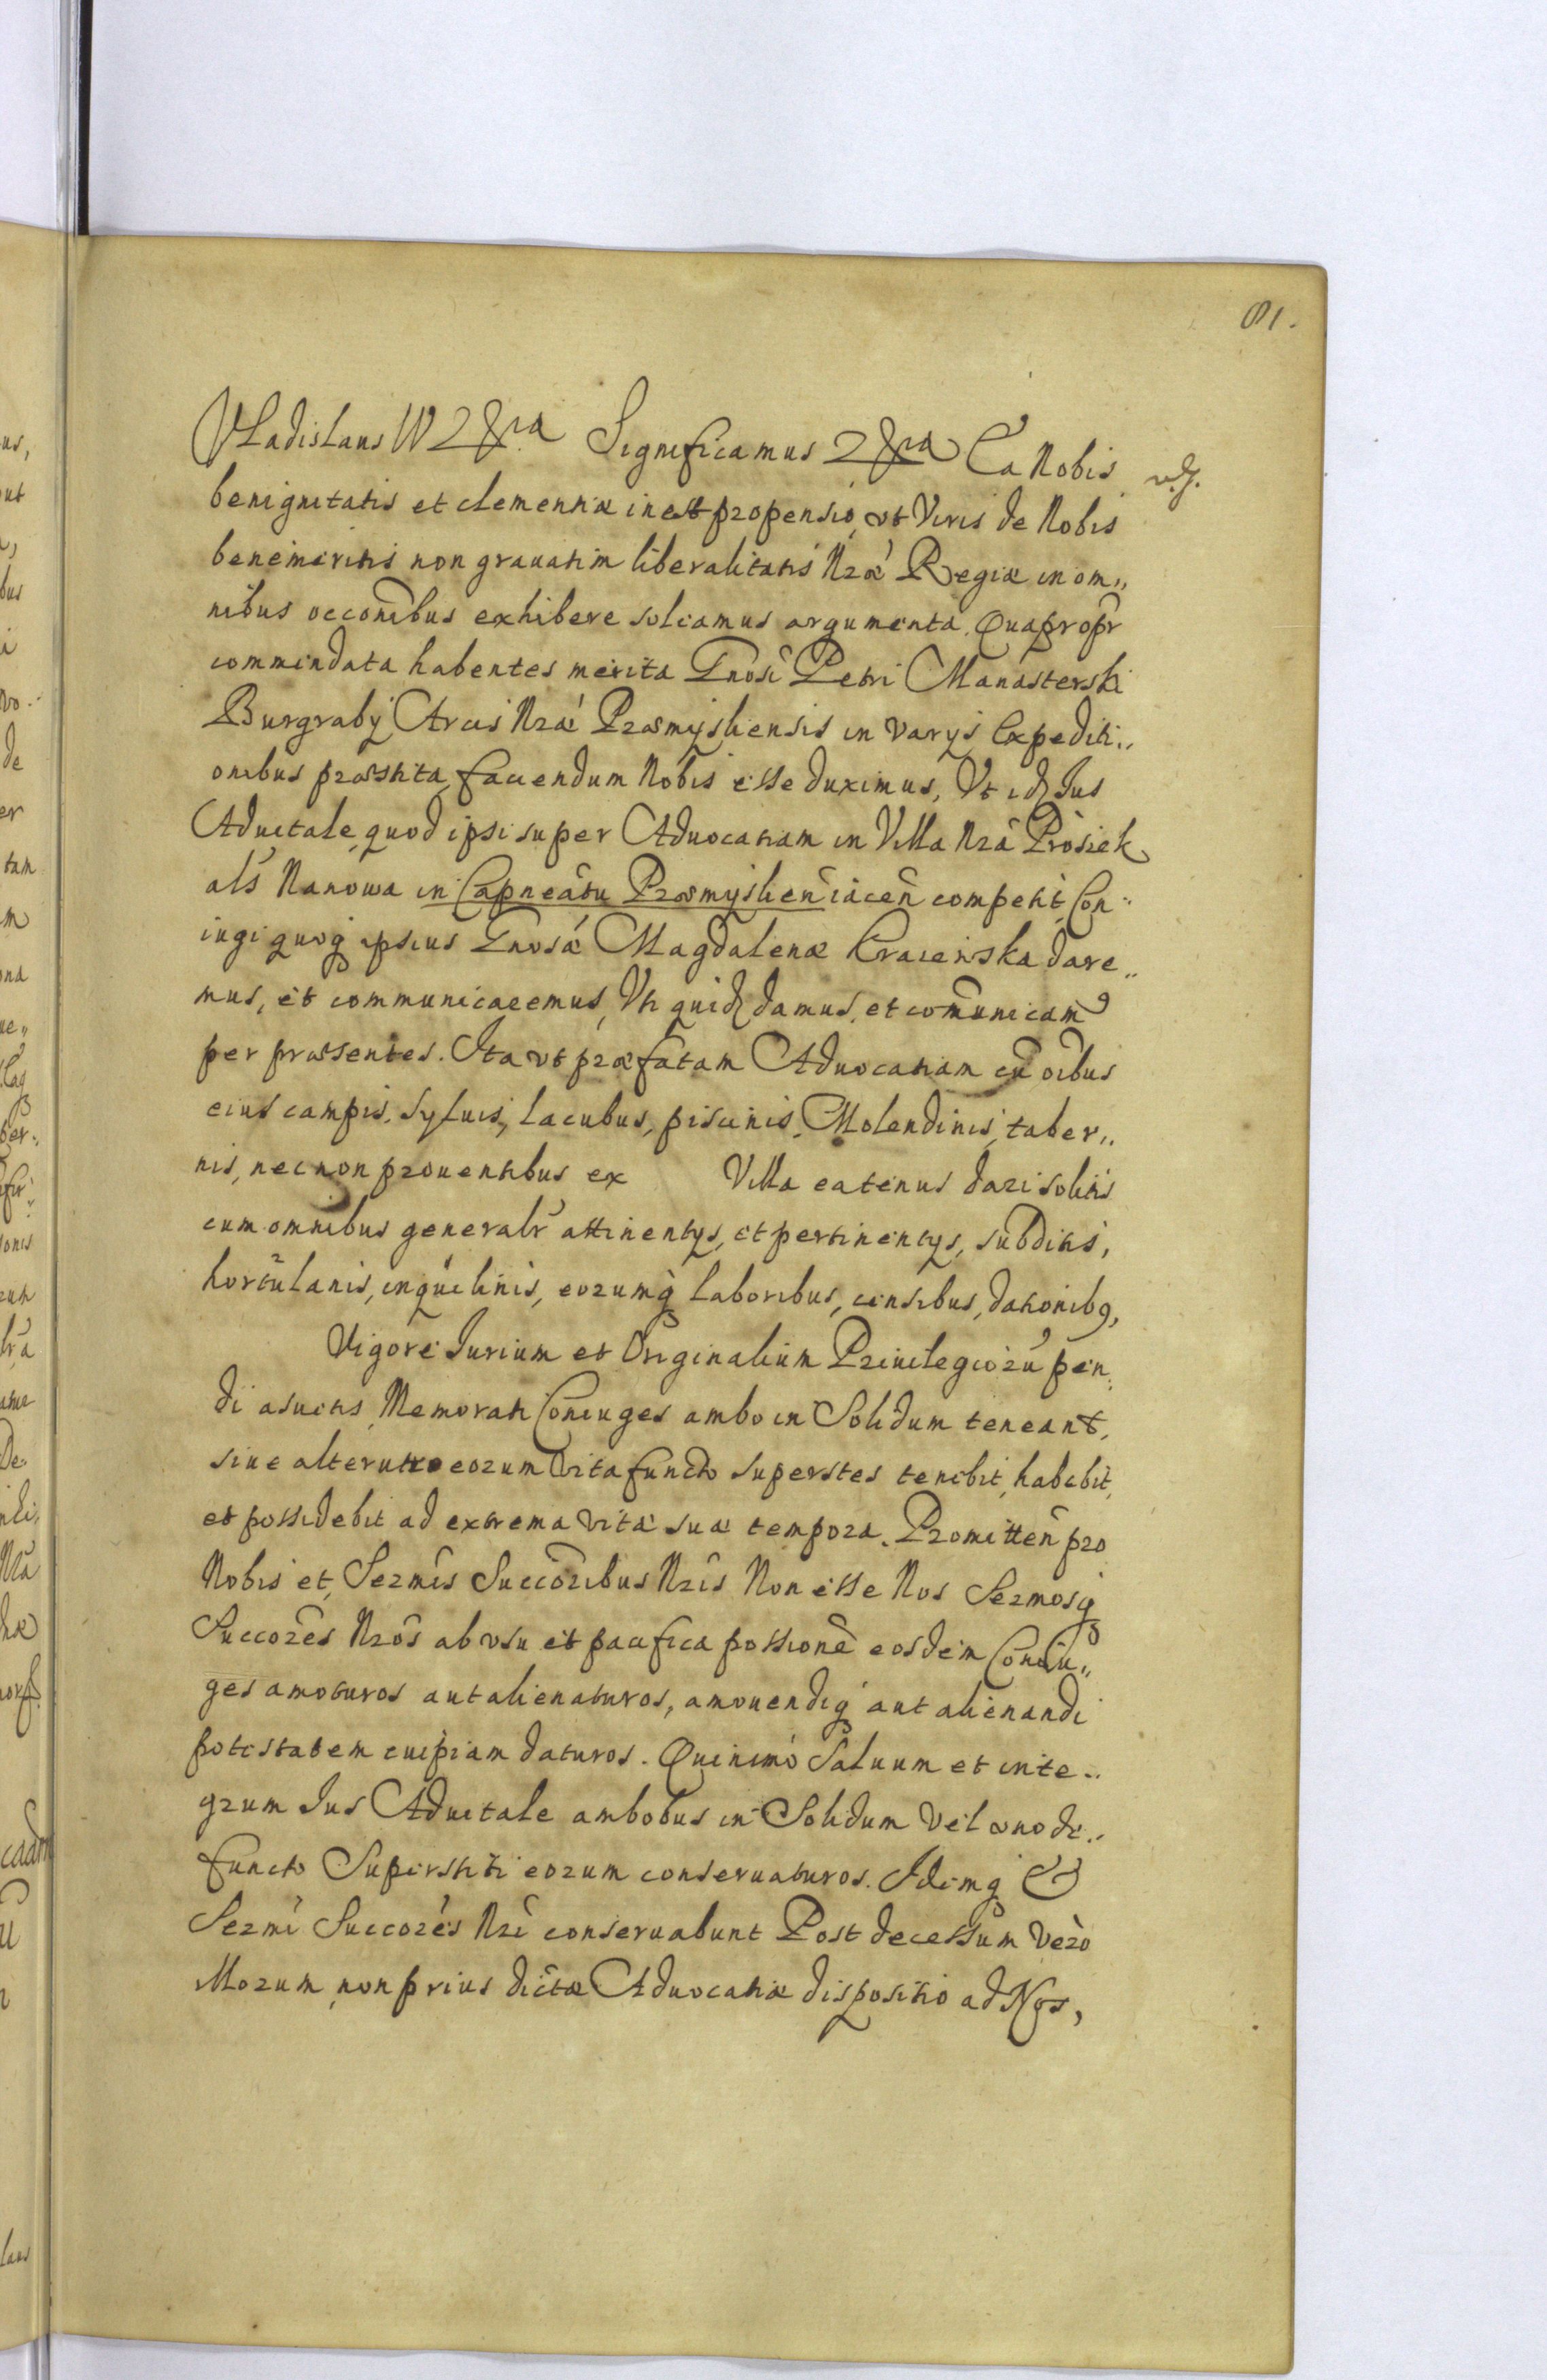 81.
Vladislaus IV &c̃ra Significamus &c̃ra Ea Nobis
benignitatis et clementiæ inest propensio, vt Viris de Nobis
benemeritis non grauatim liberalitatis Nræ Regiæ in om„
nibus occõnibus exhibere soleamus argumenta. Quaproptr̃
commendata habentes merita Gnosi Petri Manasterski
Burgrabÿ Arcis Nræ Præmÿsliensis in varÿs Expediti„
onibus præstita, faciendum Nobis esse duximus, Vt idq Jus
Aduitale, quod ipsi super Aduocatiam in Villa Nrã Prosiek
als Nanowa in Capneãtu Præmÿslieñ iaceñ competit, Con„
iugi quoq ipsius Gnosæ Magdalenæ Kraienska dare„
mus, et communicaremus, Vti quidq damus, et com̃unicam9
per præsentes. Ita vt præfatam Aduocatiam cũ oĩbus
eius campis, syluis, lacubus, piscinis, Molendinis, taber„
nis, nec non prouentibus ex Villa eatenus dari solitis
cum omnibus generalr̃ attinentÿs, et pertinentÿs, subditis,
hortulanis, inquilinis, eorumq̀ laboribus, censibus, dationib9,
Vigore Jurium et Originalium Priuilegiorũ pen„
di asuetis, Memorati Coniuges ambo in Solidum teneant,
siue alterutro eorum vita functo superstes tenebit, habebit,
et possidebit ad extrema vitæ suæ tempora. Promitteñ pro
Nobis et Sermĩs Succõribus Nrĩs Non esse Nos Sermosq
Succõres Nrõs ab vsu et pacifica possionẽ eosdem Coniu„
ges amoturos aut alienaturos, amouendiq aut alienandi
potestatem cuipiam daturos. Quinimò Saluum et inte„
grum Jus Aduitale ambobus in Solidum vel vno de„
functo Superstiti eorum conseruaturos. Idemq &
Sermĩ Succorẽs Nrĩ conseruabunt Post decessum verò
illorum, non prius dictæ Aduocatiæ dispositio ad Nos,